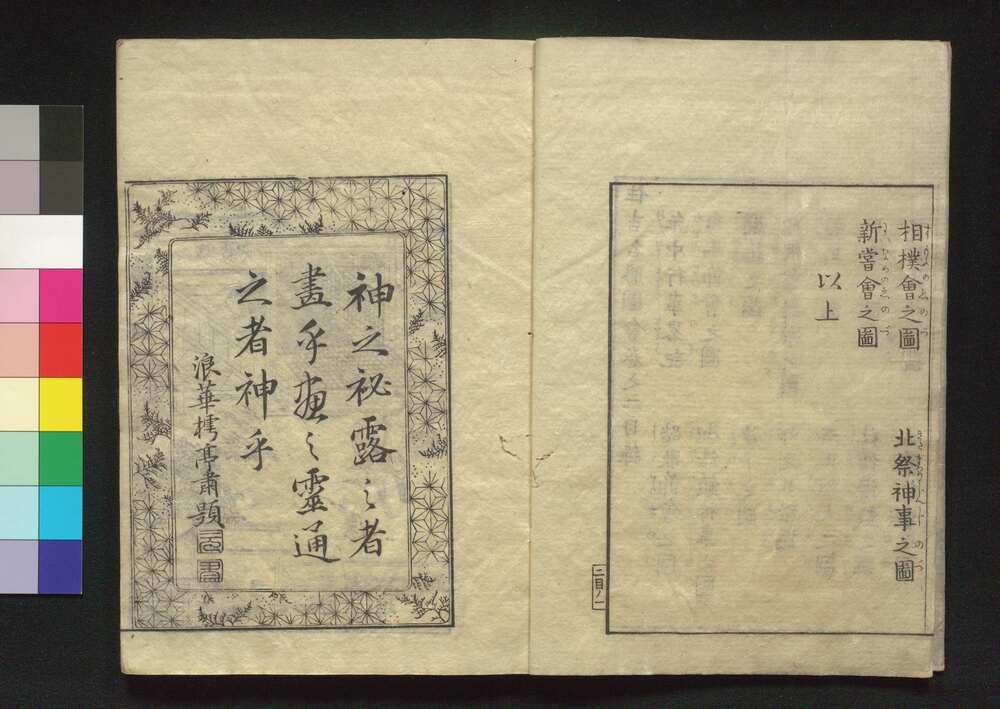 相撲會之圖
北祭神事之圖
新嘗會之圖
以上
二目ノ一
神之祕露之者
畫乎畫之靈通
之者神乎
浪華樗亭肅題